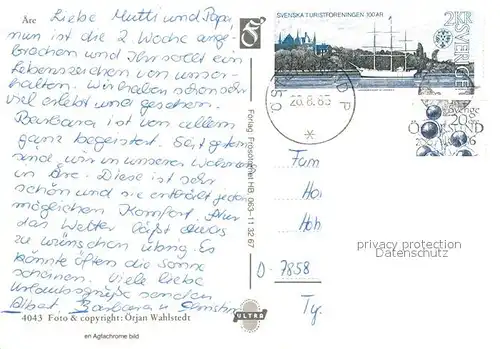 Åre
Liebe Mutti und Papa,
nun ist die 2 Woche ange-
brochen und Ihr sollt ein
Lebenszeichen von uns er-
halten. Wir haben schon sehr
viel erlebt und gesehen.
Barbara ist von allem
ganz begeistert. Seit gestern
sind wir in unserer
in Åre. Diese ist sehr
schön und sie enthält jeden
möglichen Komfort. Aber
das Wetter läßt etwas
zu wünschen übrig. Es
könnte öfters die Sonne
scheinen. Viele liebe
Urlaubsgrüße senden
Barbara u Christin
4043 Foto & copyright: Örjan Wahlstedt
en Agfachrome bild
Förlag Frösötorget HB 063-11 32 67
ULTRA
SVENSKA TURISTFÖRENINGEN 100 ÅR
2 KR
SVERIGE
Sverige
20
ÖRESUND
Fam
Hoh
D-7858
privacy protection
Datenschutz